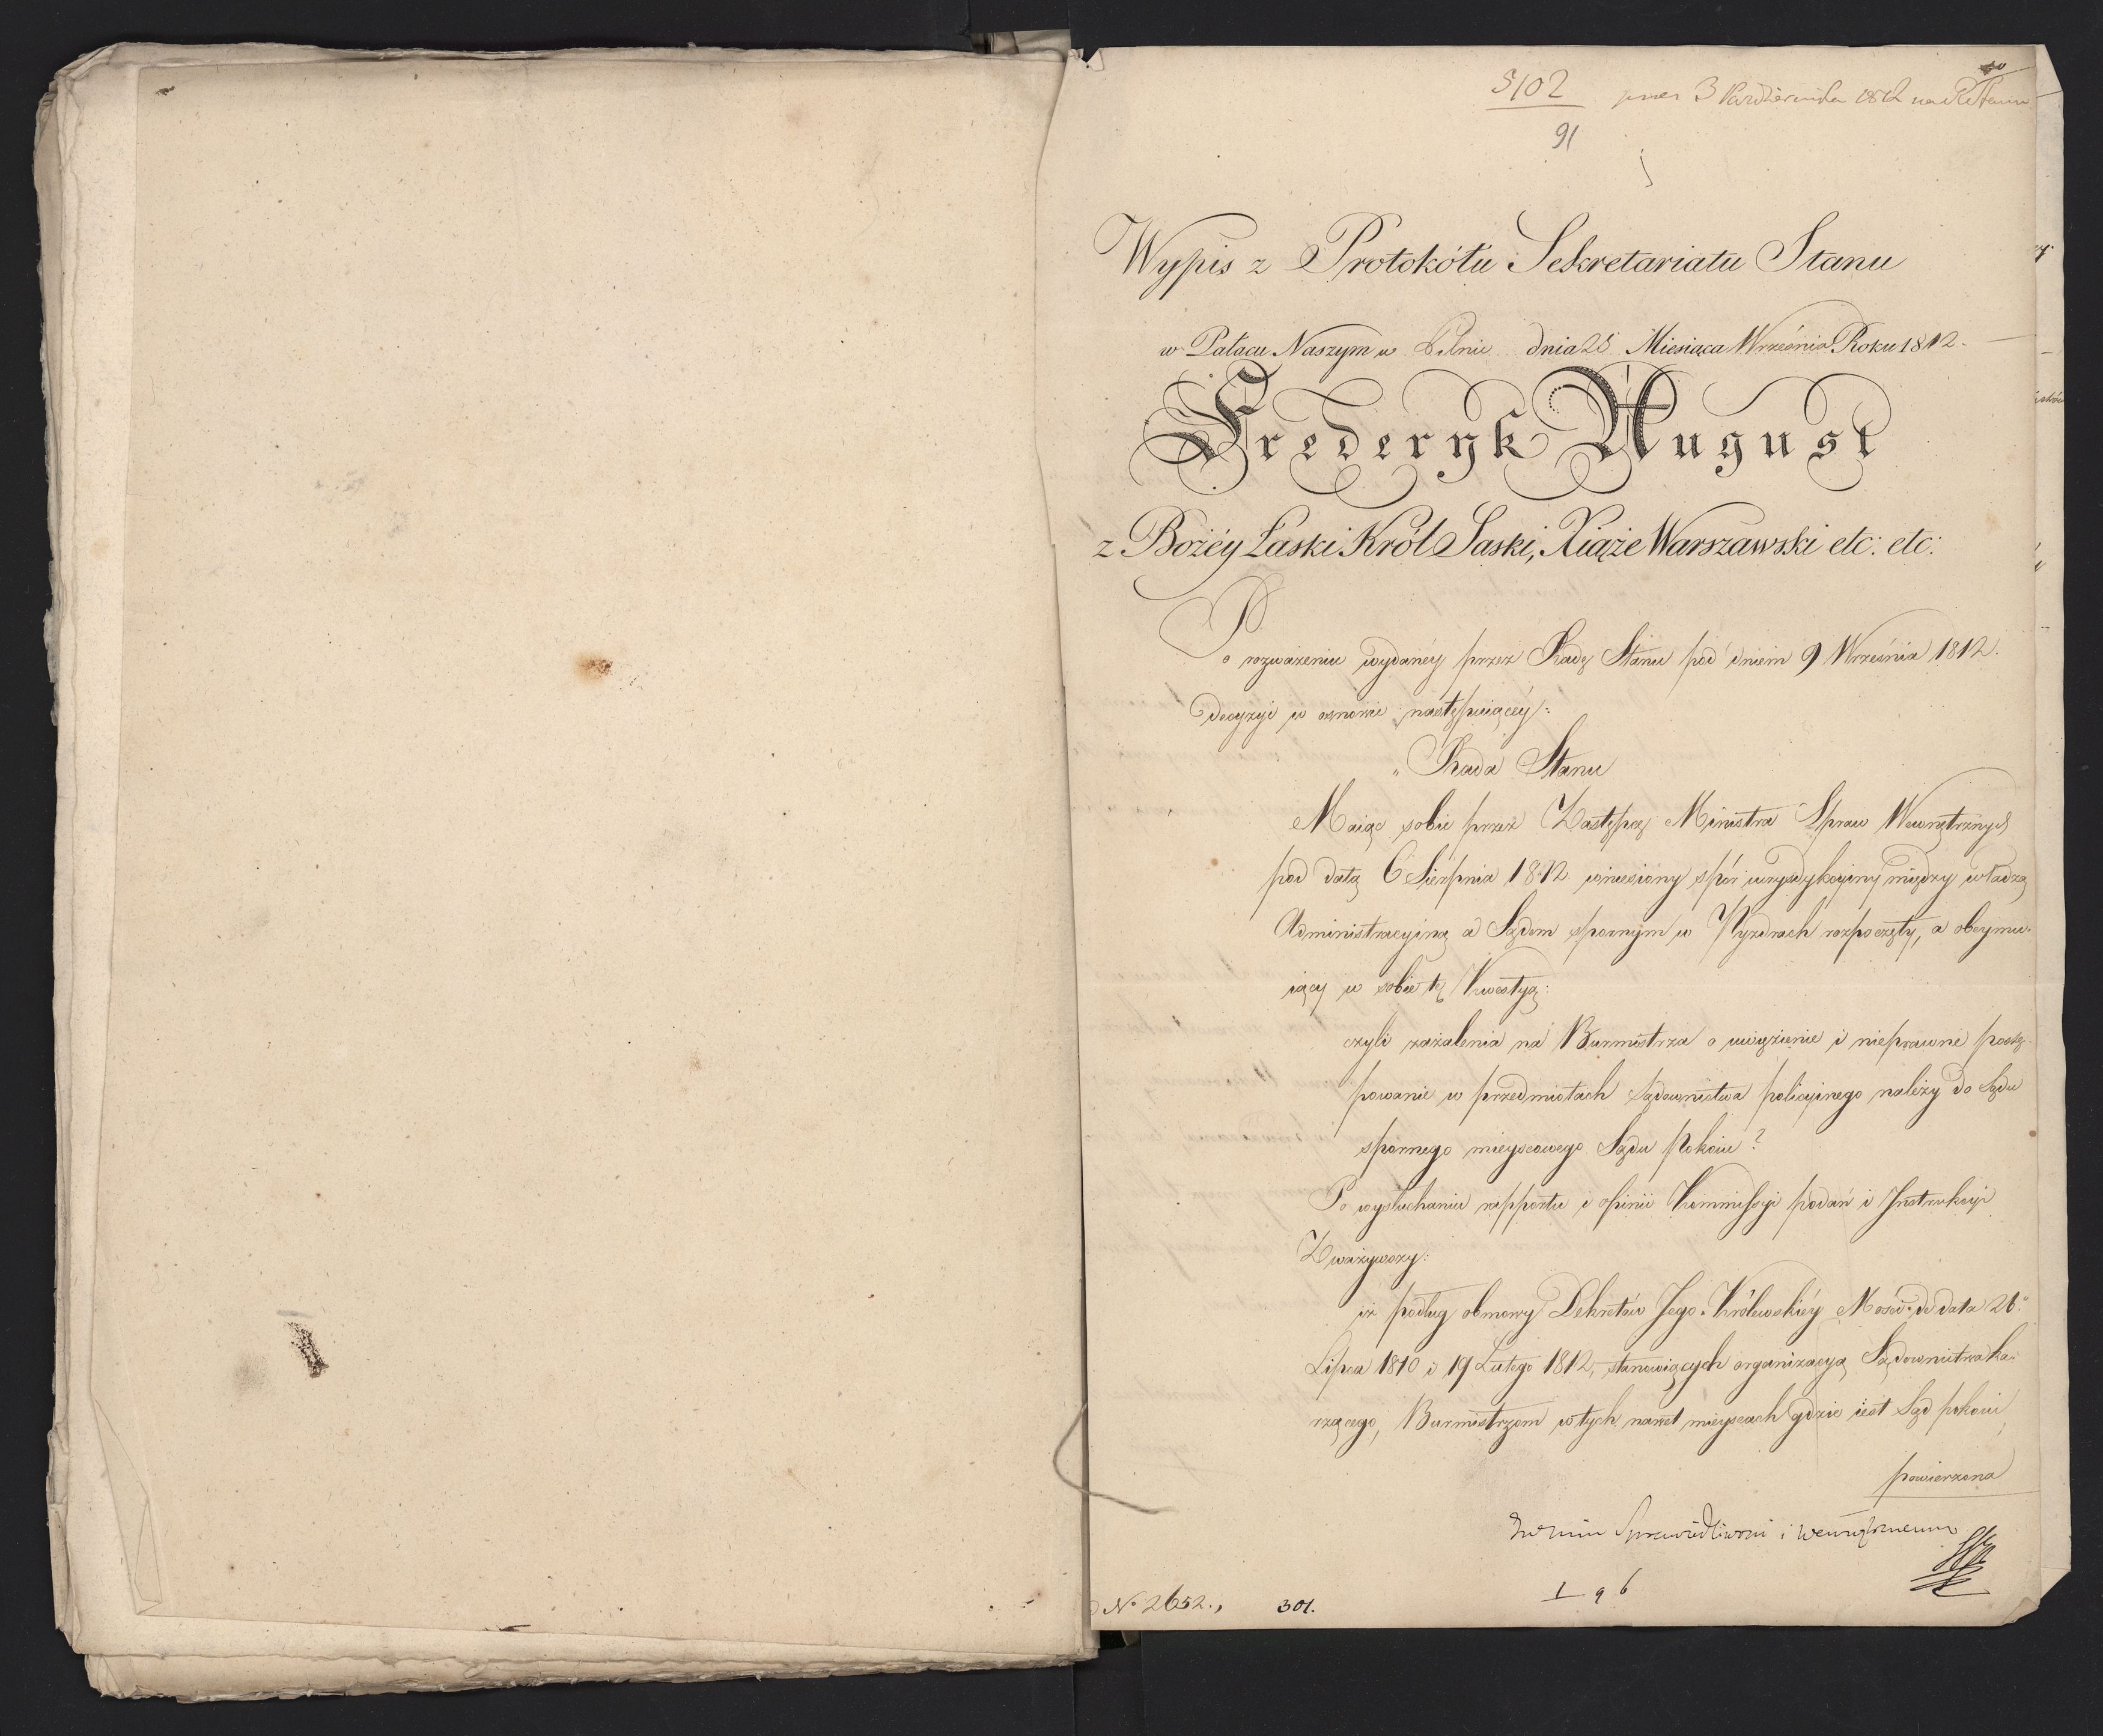 5102
91
3 Października 1812
Wypis z Protokółu Sekretariatu Stanu
w Pałacu Naszym w Pilnic dnia 28 Miesiąca Września Roku 1812.
Frederyk August
z Bożéy Łaski Król Saski, Xiąże Warszawski etc: etc:
Po rozważeniu wydanéy przez Radę Stanu pod dniem 9 Września 1812.
decyzyi w osnowie następuiącéy:
„Rada Stanu
Maiąc sobie przez Zastępcę Ministra Spraw Wewnętrznych
pod datą 6 Sierpnia 1812 wniesiony spór iuryzdykcyiny między władzą
Administracyiną a Sądem spornym w Pyzdrach rozpoczęty, a obeymu-
iący w sobie tę Kwestyą:
czyli zażalenia na Burmistrza o uwięzienie i nieprawne postę-
powanie w przedmiotach sądownictwa policyinego należy do Sądu
spornego mieyscowego Sądu Pokoiu?
Po wysłuchaniu rapportu i opinii Kommissyi podań i Instrukcyi
Zważywszy:
iż podług obmowy Dekretów Jego Królewskiéy Mości de dato 26.
Lipca 1810 i 19 Lutego 1812, stanowiących organizacyą Sądownictwa ka-
rzącego, Burmistrzom w tych nawet mieyscach gdzie iest Sąd pokoiu,
powierzona
Sprawiedliwości i Wewnętrznemu
No 2652., 301.
196